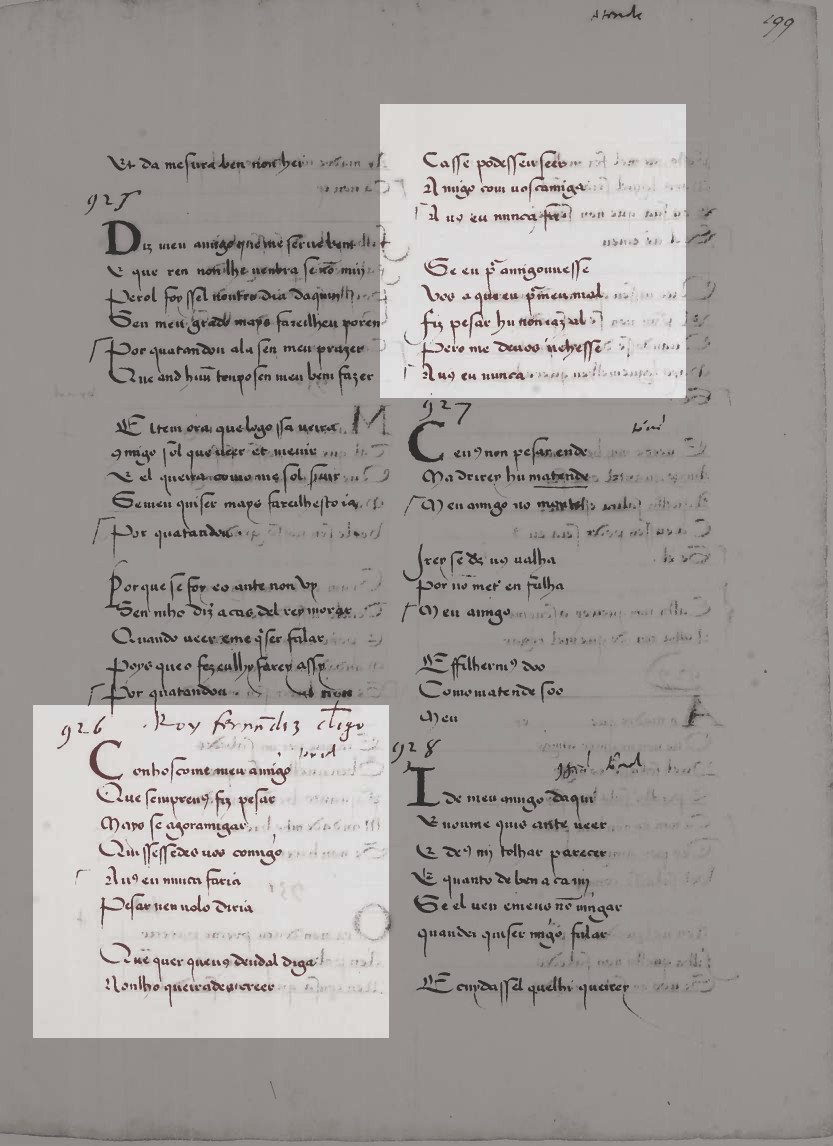 Et da mesura ben non hei
925
Diz meu amigo que me serue ben
E que ren non lhe nenbra se nō min
Pero sse foy noutro dia daquin
Sen meu grado mays fareilheu poren
Por quatandou ala sen meu prazer
Que and huū tenpo sen meu ben fazer
El tem ora que logo ssa ueira
9migo sol que ueer et uenir
E el queira como me sol
Semeu quiser mays fareilhesto ia
Por quatandou
Porque se foy eo ante non uy
Sen niho diz a cas del rey morar
Quando ueer xeme q̄ser falar
Poys que o fez eulhy farey assy
Por quatandou
926
Roy fernādiz cligo
Conhoscome meu amigo
Que sempreu9 fiz pesar
Mays se agoramigar
Quissessedes uos comigo
A u9 eu nunca faria
Pesar nen uolo diria
Que quer queu9 eu dal diga
Nonlho queirades creer
Atornde
199
Casse podesseu seer
Amigo com uoscamiga
A uo eu nunca far
Se eu p̄ amigouuesse
Vos a que eu p̄ meu mal
Fiz pesar hu non iaz al
Pero me deuos ueesse
A u9 eu nunca
927
tornel
Se u9 non pesar ende
Madrirey hu matende
Meu amigo
Irey se d's uo ualha
Por nō met' en falha
Meu amigo
E ffilhermi9 doo
Como matende soo
Meu
928
tornel
Id e meu amigo daqui
E nonme quis ante ueer
E de9 mi tolha parecer
E quanto de ben a ca mj
Se el uen e meuo nō uingar
quandel quiser migo falar
E cuydassel quelhi queirey